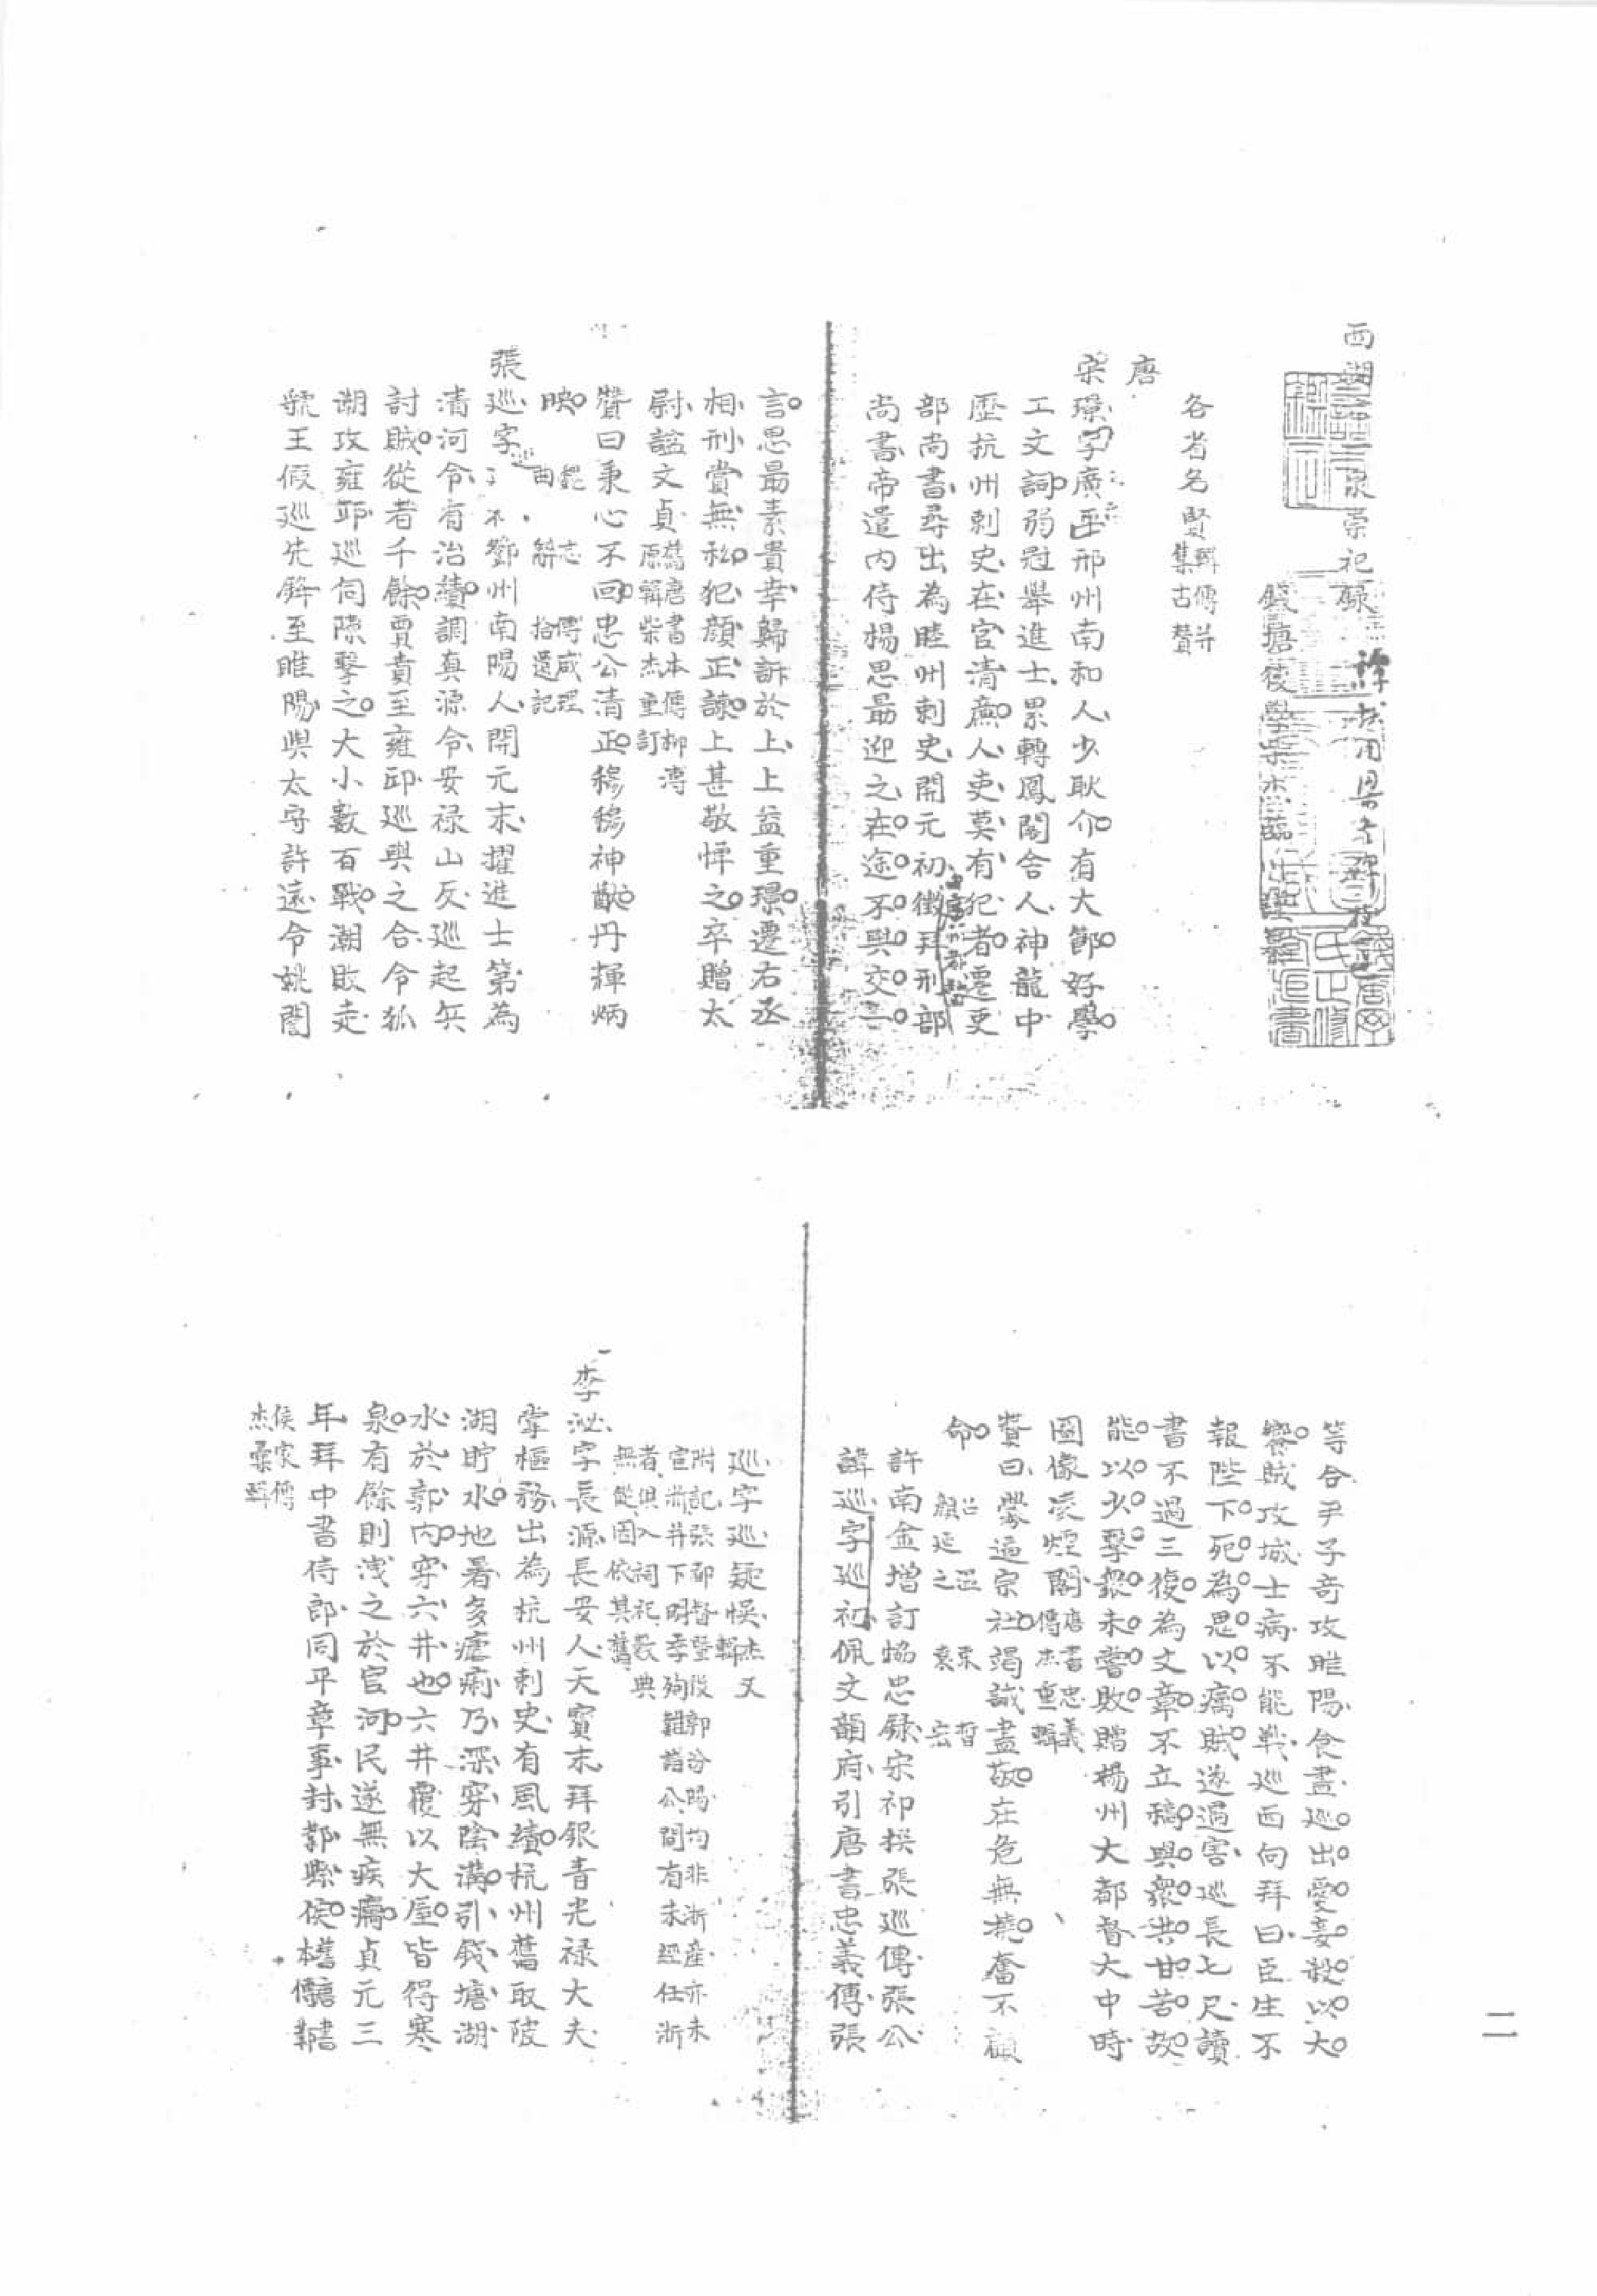 西湖三祠名賢崇祀錄
錢塘後學柴杰臨川彙纂
各省名賢輯傳并集古贊
唐
宋璟字廣平邢州南和人少耿介有大節好學
工文詞弱冠舉進士累轉鳳閣舍人神龍中
歷杭州刺史在官清廉人吏莫有犯者遷吏
部尚書尋出為睦州刺史開元初徵拜刑部
尚書帝遣內侍楊思勗迎之在途不與交一
言思勗素貴幸歸訴於上上益重璟遷右丞
相刑賞無私犯顏正諫上甚敬憚之卒贈太
尉諡文貞舊唐書本傳柳漙原輯柴杰重訂
贊曰秉心不回忠公清正穆穆神猷丹輝炳
映
張巡字巡鄧州南陽人開元末擢進士第為
清河令有治績調真源令安祿山反巡起兵
討賊從者千餘賈賁至雍邱巡與之合令狐
潮攻雍邱巡伺隙擊之大小數百戰潮敗走
虢王假巡先鋒至睢陽與太守許遠令姚誾
等合尹子奇攻睢陽食盡巡出愛妾殺以大
饗賊攻城士病不能戰巡西向拜曰臣生不
報陛下死為鬼以癘賊遂遇害巡長七尺讀
書不過三復為文章不立稿與衆共甘苦故
能以少擊衆未嘗敗贈揚州大都督大中時
圖像凌煙閣唐書忠義傳杰重輯
贊曰釁逼宗社竭誠盡敬在危無撓奮不顧
命
許南金增訂協忠錄宋祁撰張巡傳張公
諱巡字巡初佩文韻府引唐書忠義傳張
巡字巡疑悞杰又輯
附記張都督暨段郭汾陽均非浙產亦未
宦浙并下明季殉難諸公間有未經任浙
者與入祠祀數典
無從因依其舊
李泌字長源長安人天寶末拜銀青光禄大夫
掌樞務出為杭州刺史有風績杭州舊取陂
湖貯水地著多瘧痢乃深穿陰溝引錢塘湖
水於郭內穿六井也六井覆以大屋皆得寒
泉有餘則洩之於官河民遂無疾癘貞元三
年拜中書侍郎同平章事封鄴縣侯舊唐書本傳鄴
侯家傳杰彙輯
二